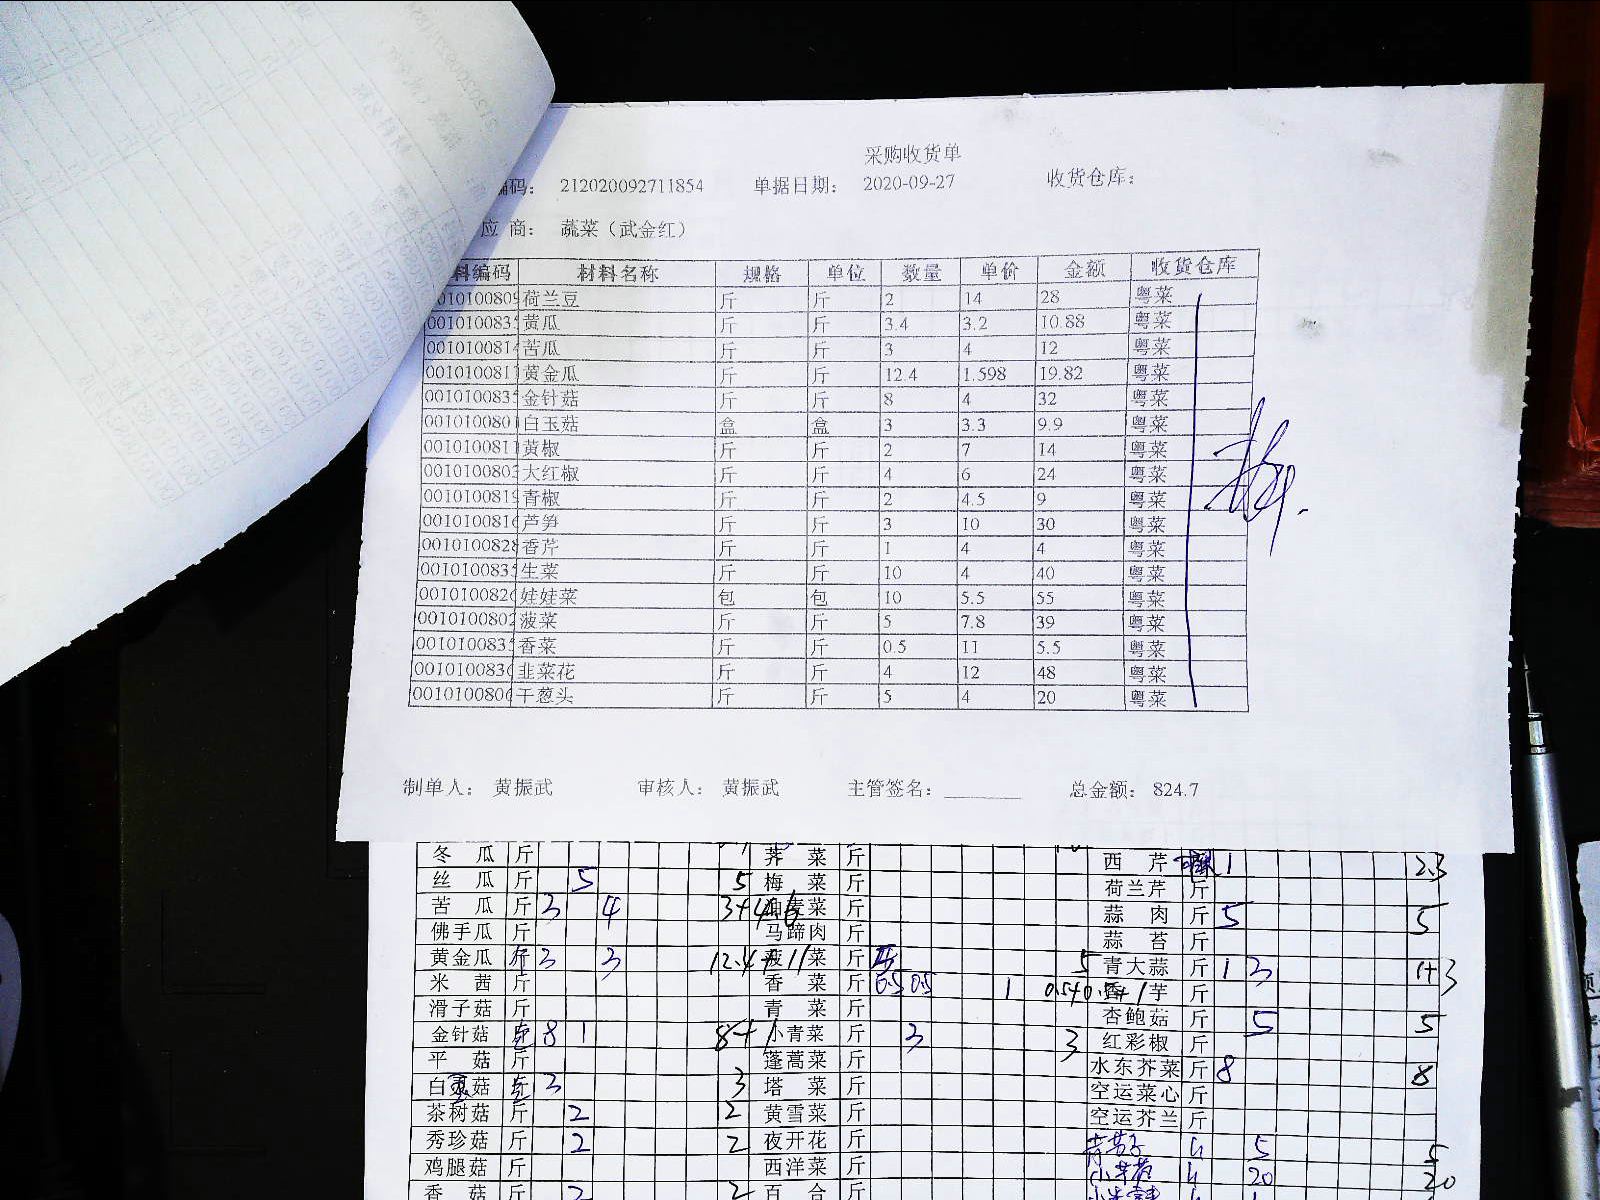 采购收货单
编码： 212020092711854 单据日期： 2020-09-27 收货仓库：
应 商： 蔬菜（武金红）
料编码 材料名称 规格 单位 数量 单价 金额 收货仓库
010100809 荷兰豆 斤 斤 2 14 28 粤菜
0010100835 黄瓜 斤 斤 3.4 3.2 10.88 粤菜
0010100814 苦瓜 斤 斤 3 4 12 粤菜
001010081 黄金瓜 斤 斤 12.4 1.598 19.82 粤菜
001010083 金针菇 斤 斤 8 4 32 粤菜
001010080 白玉菇 盒 盒 3 3.3 9.9 粤菜
001010081 黄椒 斤 斤 2 7 14 粤菜
001010080 大红椒 斤 斤 4 6 24 粤菜
001010081 青椒 斤 斤 2 4.5 9 粤菜
001010081 芦笋 斤 斤 3 10 30 粤菜
001010082 香芹 斤 斤 1 4 4 粤菜
001010083 生菜 斤 斤 10 4 40 粤菜
001010082 娃娃菜 包 包 10 5.5 55 粤菜
001010080 菠菜 斤 斤 5 7.8 39 粤菜
001010083 香菜 斤 斤 0.5 11 5.5 粤菜
001010083 韭菜花 斤 斤 4 12 48 粤菜
001010080 干葱头 斤 斤 5 4 20 粤菜
制单人： 黄振武 审核人： 黄振武 主管签名： 总金额： 824.7
冬 瓜 斤 荠 菜 斤 西 芹 1 2.3
丝 瓜 斤 5 5 梅 菜 斤 荷兰芹 斤
苦 瓜 斤 3 4 3+4 菜 斤 蒜 肉 斤 5 5
佛手瓜 斤 马蹄肉 斤 蒜 苔 斤
黄金瓜 斤 3 3 12.4+11 菠 菜 斤 5 5 青大蒜 斤 1 3 1+3
米 茜 斤 香 菜 斤 0.5 0.5 1 0.5+0.5+1 香 芋 斤
滑子菇 斤 青 菜 斤 杏鲍菇 斤 5 5
金针菇 8 1 8+1 小青菜 斤 3 3 红彩椒 斤
平 菇 斤 蓬蒿菜 斤 水东芥菜 斤 8 8
白玉菇 3 3 塔 菜 斤 空运菜心 斤
茶树菇 斤 2 2 黄雪菜 斤 空运芥兰 斤
秀珍菇 斤 2 2 夜开花 斤 5 5
鸡腿菇 斤 西洋菜 斤 20 20
香 菇 斤 2 2 百 合 斤